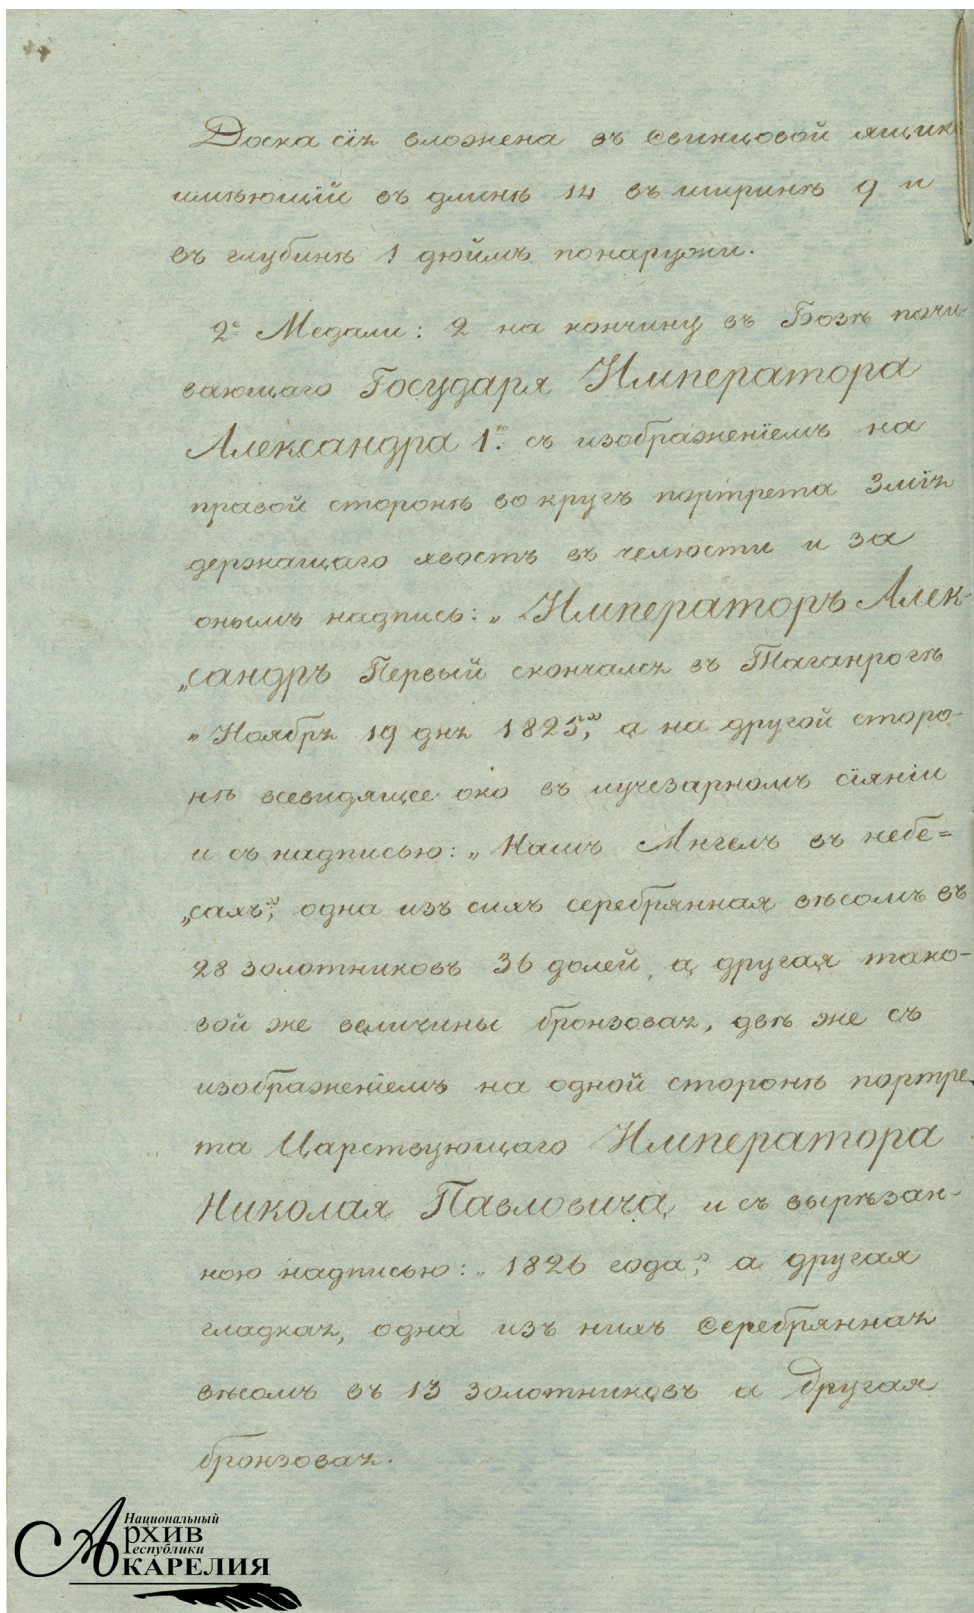 Доска сія вложена въ свинцовой ящик
имѣющій въ длинѣ 14 въ ширинѣ 9 и
въ глубинѣ 1 дюймъ понаружи.
2е Медали: 2 на кончину въ Бозѣ почи-
вающаго Государя Императора
Александра 1.го съ изображеніемъ на
правой сторонѣ во кругъ портрета Змія
держащаго хвостъ въ челюсти и за
онымъ надпись: „Императоръ Алек-
„сандръ Первый скончался въ Таганрогѣ
„Ноября 19 дня 1825", а на другой сторо-
нѣ всевидящее око въ лучезарномъ сіяніи
и съ надписью: „Нашъ Ангелъ въ небе=
„сахъ", одна изъ сихъ серебрянная вѣсомъ въ
28 золотниковъ 36 долей, а другая тако-
вой же величины бронзовая, двѣ же съ
изображеніемъ на одной сторонѣ портре
та Царствующаго Императора
Николая Павловича, и съ вырѣзан-
ною надписью: „1826 года", а другая
гладкая, одна изъ нихъ серебрянная
вѣсомъ въ 13 золотниковъ а другая
бронзовая.
Национальный
Архив
Республики
КАРЕЛИЯ